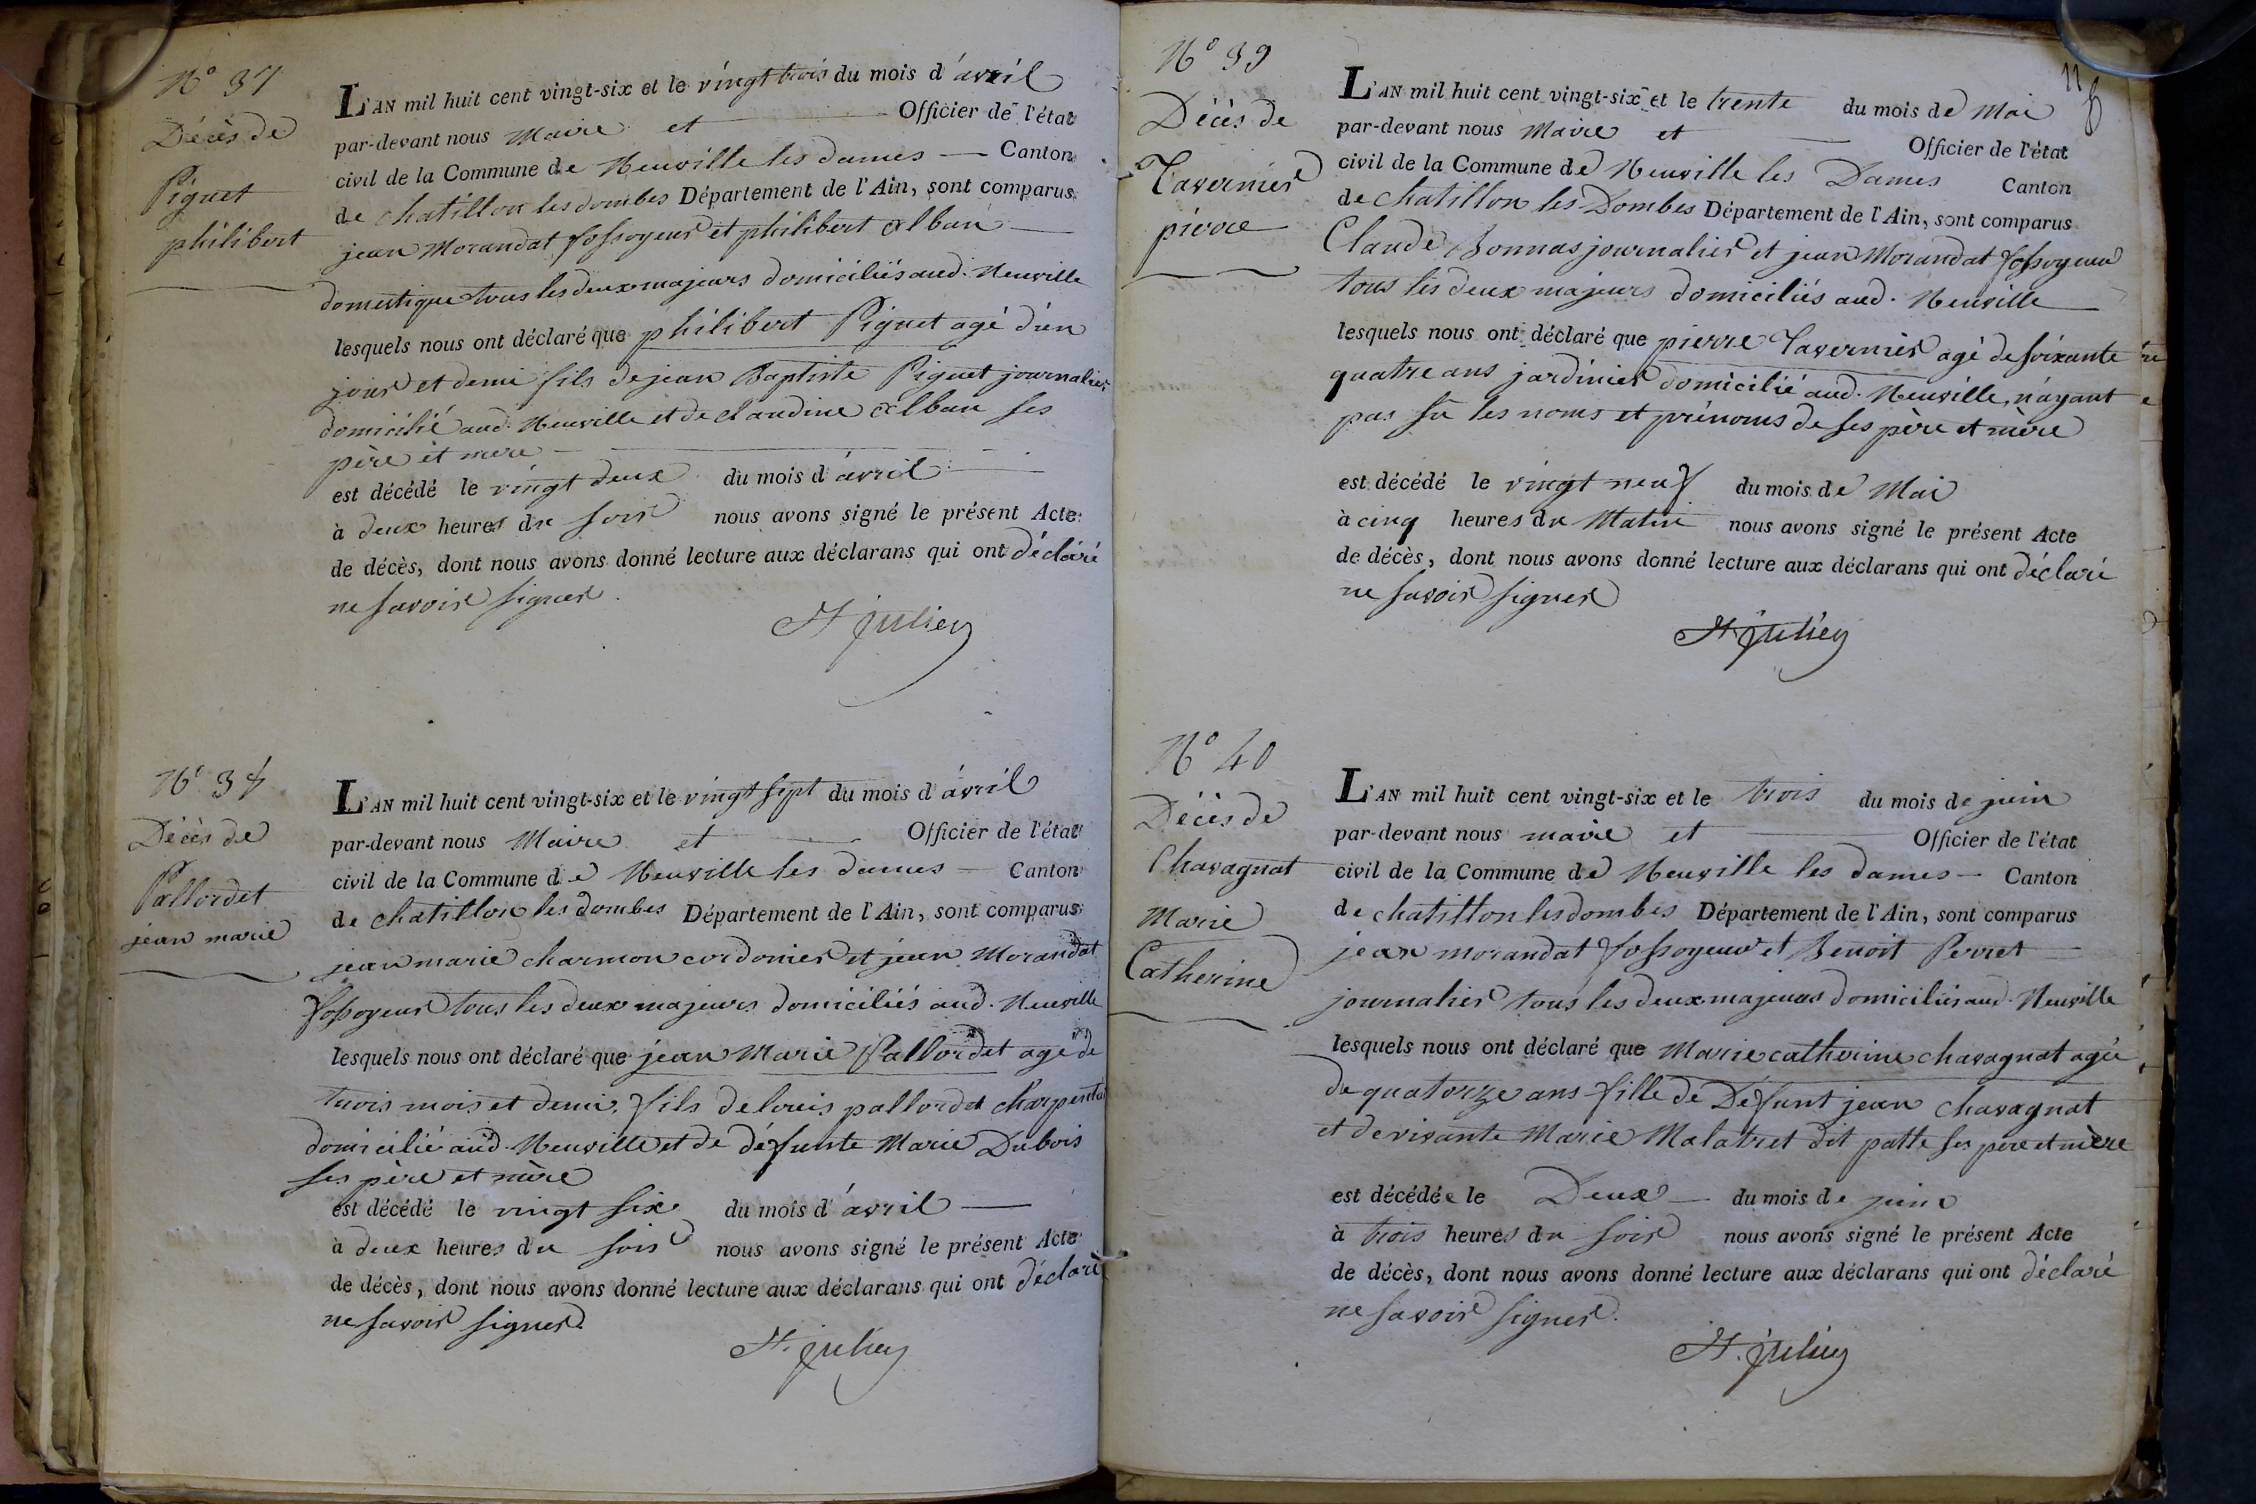 N° 37
Décès de
Piguet
philibert
L'AN mil huit cent vingt-six et le vingt trois du mois d'avril
par-devant nous Maire et Officier de l'état
civil de la Commune de Neuville les dames — Canton
de chatillon les dombes Département de l'Ain, sont comparus
jean Morandat fossoyeur et philibert alban
domestique tous les deux majeurs domiciliés aud. Neuville
lesquels nous ont déclaré que philibert Piguet agé d'un
jour et demi fils de jean Baptiste Piguet journalier
domicilié aud. Neuville et de claudine alban ses
père et mere
est décédé le vingt deux du mois d'avril
à deux heures du soir nous avons signé le présent Acte
de décès, dont nous avons donné lecture aux déclarans qui ont déclaré
ne savoir signer.
St julien
N° 38
Décès de
Pallordet
jean marie
L'AN mil huit cent vingt-six et le vingt sept du mois d'avril
par-devant nous Maire et Officier de l'état
civil de la Commune de Neuville les dames — Canton
de chatillon les dombes Département de l'Ain, sont comparus
jean marie charmon cordonier et jean Morandat
fossoyeur tous les deux majeurs domiciliés aud. Neuville
lesquels nous ont déclaré que jean Marie Pallordet agé de
trois mois et demi, fils de louis pallordet charpentier
domicilié aud. Neuville et de défunte Marie Dubois
ses père et mère
est décédé le vingt six du mois d'avril —
à deux heures du soir nous avons signé le présent Acte
de décès, dont nous avons donné lecture aux déclarans qui ont déclaré
ne savoir signer.
St. julien
11
N° 39
Décès de
Tavernier
pierre
L'AN mil huit cent vingt-six et le trente du mois de Mai
par-devant nous Maire et Officier de l'état
civil de la Commune de Neuville les Dames Canton
de chatillon les Dombes Département de l'Ain, sont comparus
Claude Bonnas journalier et jean Morandat fossoyeur
tous les deux majeurs domiciliés aud. Neuville
lesquels nous ont déclaré que pierre Tavernier agé de soixante
quatre ans jardinier domicilié aud. Neuville, n'ayant
pas su les noms et prénoms de ses père et mère
est décédé le vingt neuf du mois de Mai
à cinq heures du Matin nous avons signé le présent Acte
de décès, dont nous avons donné lecture aux déclarans qui ont déclaré
ne savoir signer
St. julien
N° 40
Décès de
Chavagnat
Marie
Catherine
L'AN mil huit cent vingt-six et le trois du mois de juin
par-devant nous maire et Officier de l'état
civil de la Commune de Neuville les dames — Canton
de chatillon les dombes Département de l'Ain, sont comparus
jean morandat fossoyeur et Benoit Perret
journalier tous les deux majeurs domiciliés aud. Neuville
lesquels nous ont déclaré que Marie catherine chavagnat agée
de quatorze ans fille de Défunt jean chavagnat
et de vivante Marie Malatret dit patte ses père et mère
est décédée le Deux — du mois de juin
à trois heures du soir nous avons signé le présent Acte
de décès, dont nous avons donné lecture aux déclarans qui ont déclaré
ne savoir signer.
St. julien